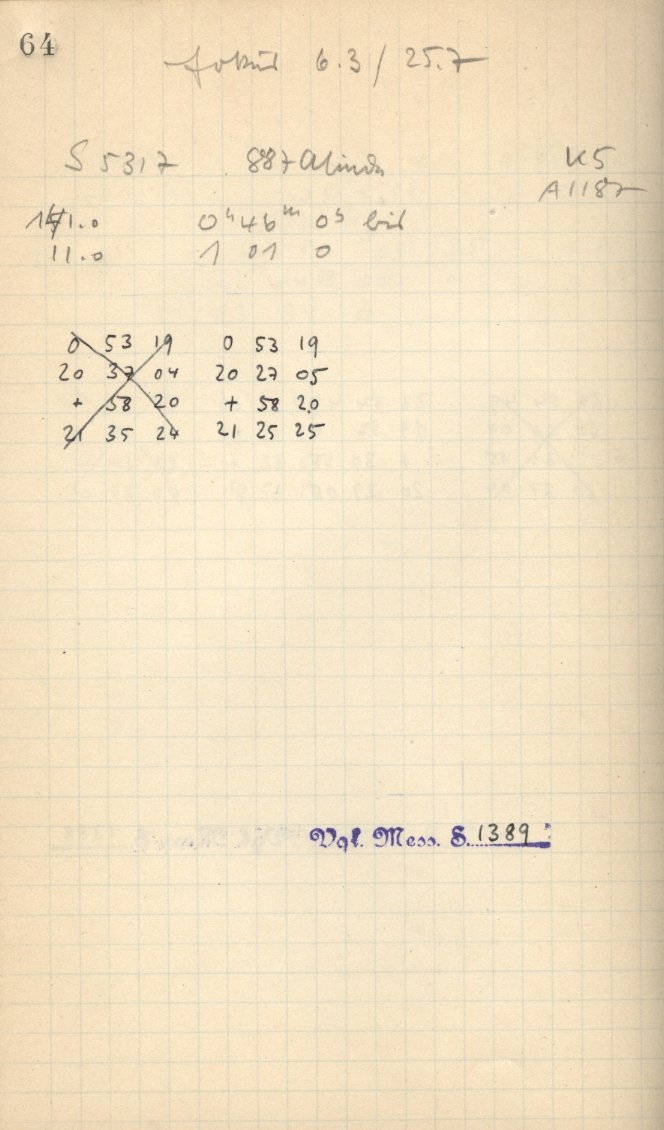 64
Fokus 6.3 / 25.7
S 5317 887 Alinda K5
A1187
11.0 0h 46m 0s bis
11.0 1 01 0
0 53 19 0 53 19
20 37 04 20 27 05
+ 58 20 + 58 20
21 35 24 21 25 25
Vgl. Mess. S. 1389